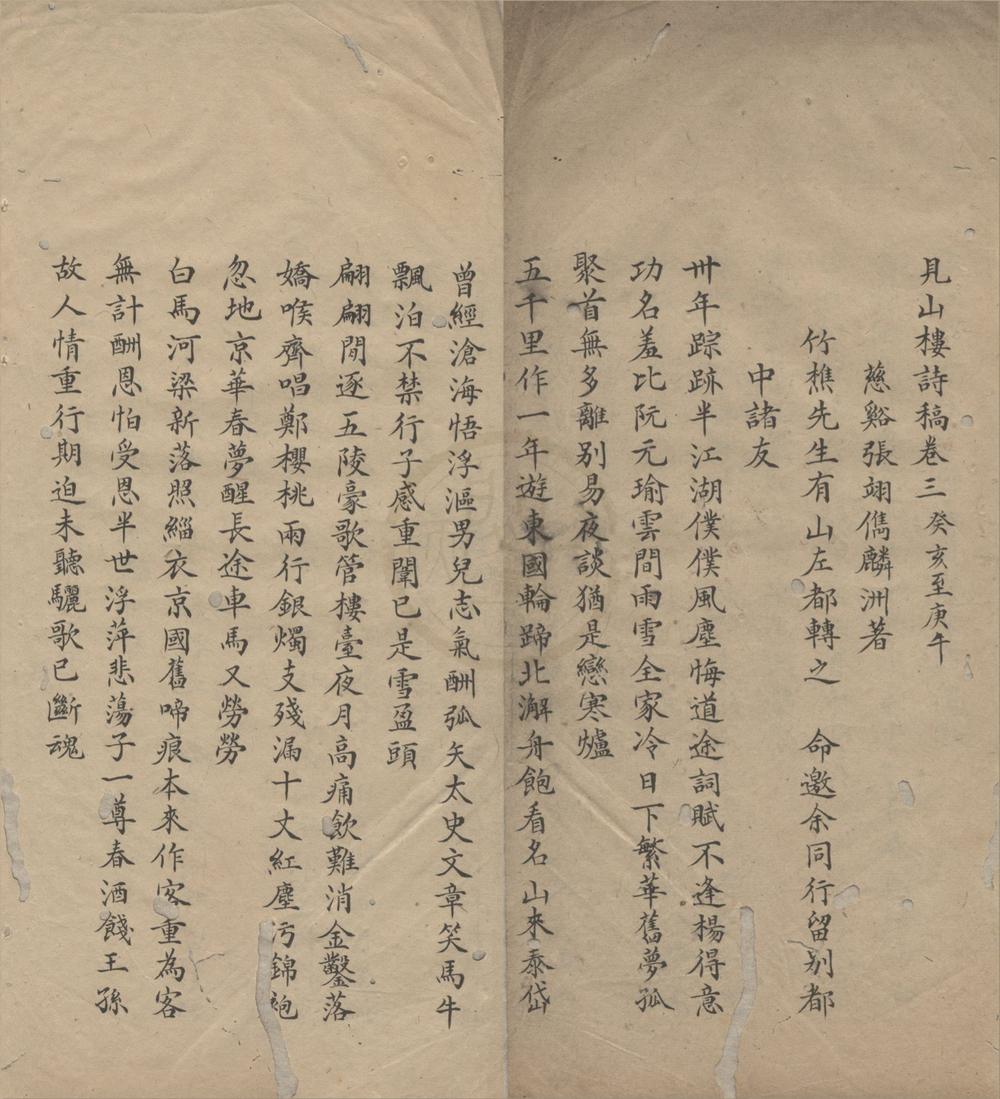 見山樓詩稿卷三癸亥至庚午
慈谿張翊儁麟洲著
竹樵先生有山左都轉之　命邀余同行留別都
中諸友
卅年踪跡半江湖僕僕風塵悔道途詞賦不逢楊得意
功名羞比阮元瑜雲間雨雪全家冷日下繁華舊夢孤
聚首無多離別易夜談猶是戀寒爐
五千里作一年遊東國輪蹄北澥舟飽看名山來泰岱
曾經滄海悟浮漚男兒志氣酬弧矢太史文章笑馬牛
飄泊不禁行子感重闈已是雪盈頭
翩翩閒逐五陵豪歌管樓臺夜月高痛飲難消金鑿落
嬌喉齊唱鄭櫻桃兩行銀燭支殘漏十丈紅塵污錦袍
忽地京華春夢醒長途車馬又勞勞
白馬河梁新落照緇衣京國舊啼痕本來作客重為客
無計酬恩怕受恩半世浮萍悲蕩子一尊春酒餞王孫
故人情重行期迫未聽驪歌已斷魂